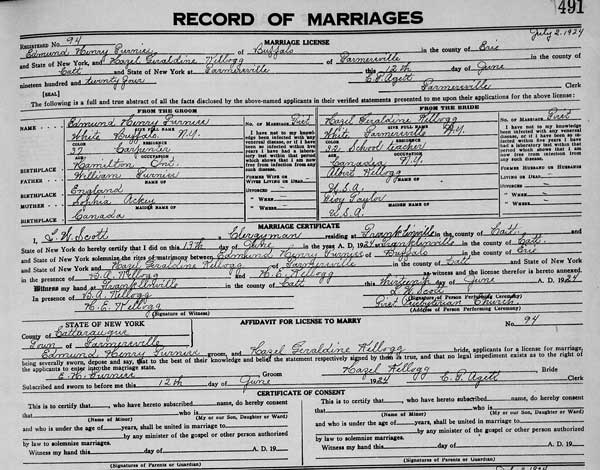 491
RECORD OF MARRIAGES
July 2, 1924
Registered No. 94 MARRIAGE LICENSE
Edmund Henry Furniss of Buffalo in the county of Erie
and State of New York, and Hazel Geraldine Kellogg of Farmersville in the county of
Catt and State of New York at Farmersville this 12th day of June
nineteen hundred and twenty four E. P. Agett
[SEAL] Farmersville Clerk
The following is a full and true abstract of all the facts disclosed by the above-named applicants in their verified statements presented to me upon their applications for the above license:
FROM THE GROOM
NAME Edmund Henry Furniss
FULL NAME
White Buffalo, N.Y.
COLOR RESIDENCE
Carpenter
AGE OCCUPATION
BIRTHPLACE Hamilton Ont.
FATHER William Furniss
NAME OF
BIRTHPLACE England
MOTHER Sophia
MAIDEN NAME OF
BIRTHPLACE Canada
No. of Marriage First
I have not to my knowledge been infected with any venereal disease, or if I have been so infected within five years I have had a laboratory test within that period which shows that I am now free from infection from any such disease.
Former Wife or Wives Living or Dead
Divorced
" When
" When
FROM THE BRIDE
Hazel Geraldine Kellogg
FULL NAME
White Farmersville N.Y.
COLOR RESIDENCE
32 School teacher
AGE OCCUPATION
Canadea N.Y.
Albert Kellogg
NAME OF
U.S.A.
Taylor
MAIDEN NAME OF
U.S.A.
No. of Marriage First
I have not to my knowledge been infected with any venereal disease, or if I have been so infected within five years I have had a laboratory test within that period which shows that I am now free from infection from any such disease.
Former Husband or Husbands Living or Dead
Divorced
" When
" When
MARRIAGE CERTIFICATE
I, L. W. Scott a Clergyman residing at Franklinville in the county of Catt. and
State of New York do hereby certify that I did on this 13th day of June in the year A. D. 1924 at Franklinville in the county of Catt. and
State of New York solemnize the rites of matrimony between Edmund Henry Furniss of Buffalo in the county of Erie
and State of New York and Hazel Geraldine Kellogg of Farmersville in the county of Catt and State of New York
in the presence of B. A. Kellogg and H. E. Kellogg as witness and the license therefor is hereto annexed.
Witness my hand at Franklinville in the county of Catt this thirteenth day of June A. D. 1924
In presence of B. A. Kellogg L. W. Scott
(Signature of Person Performing Ceremony)
H. E. Kellogg First Presbyterian Church
(Signature of Witness) (Address of Person Performing Ceremony)
STATE OF NEW YORK AFFIDAVIT FOR LICENSE TO MARRY No. 94
County of Cattaraugus
Town of Farmersville
Edmund Henry Furniss groom, and Hazel Geraldine Kellogg bride, applicants for a license for marriage,
being severally sworn, depose and say, that to the best of their knowledge and belief the statement respectively signed by them is true, and that no legal impediment exists as to the right of
the applicants to enter into the marriage state. Hazel Kellogg Bride
E. H. Furniss Groom
Subscribed and sworn to before me this 12th day of June 1924 E. P. Agett Clerk
CERTIFICATE OF CONSENT
This is to certify that , who have hereto subscribed name, do hereby consent
that who is
(Name of Minor) (My or our Son, Daughter or Ward)
and who is under the age of years, shall be united in marriage to
by any minister of the gospel or other person authorized
by law to solemnize marriages.
Witness my hand this day of A. D. 19
(Signatures of Parents or Guardian)
This is to certify that , who have hereto subscribed name, do hereby consent
that who is
(Name of Minor) (My or our Son, Daughter or Ward)
and who is under the age of years, shall be united in marriage to
by any minister of the gospel or other person authorized
by law to solemnize marriages.
Witness my hand this day of A. D. 19
(Signatures of Parents or Guardian)